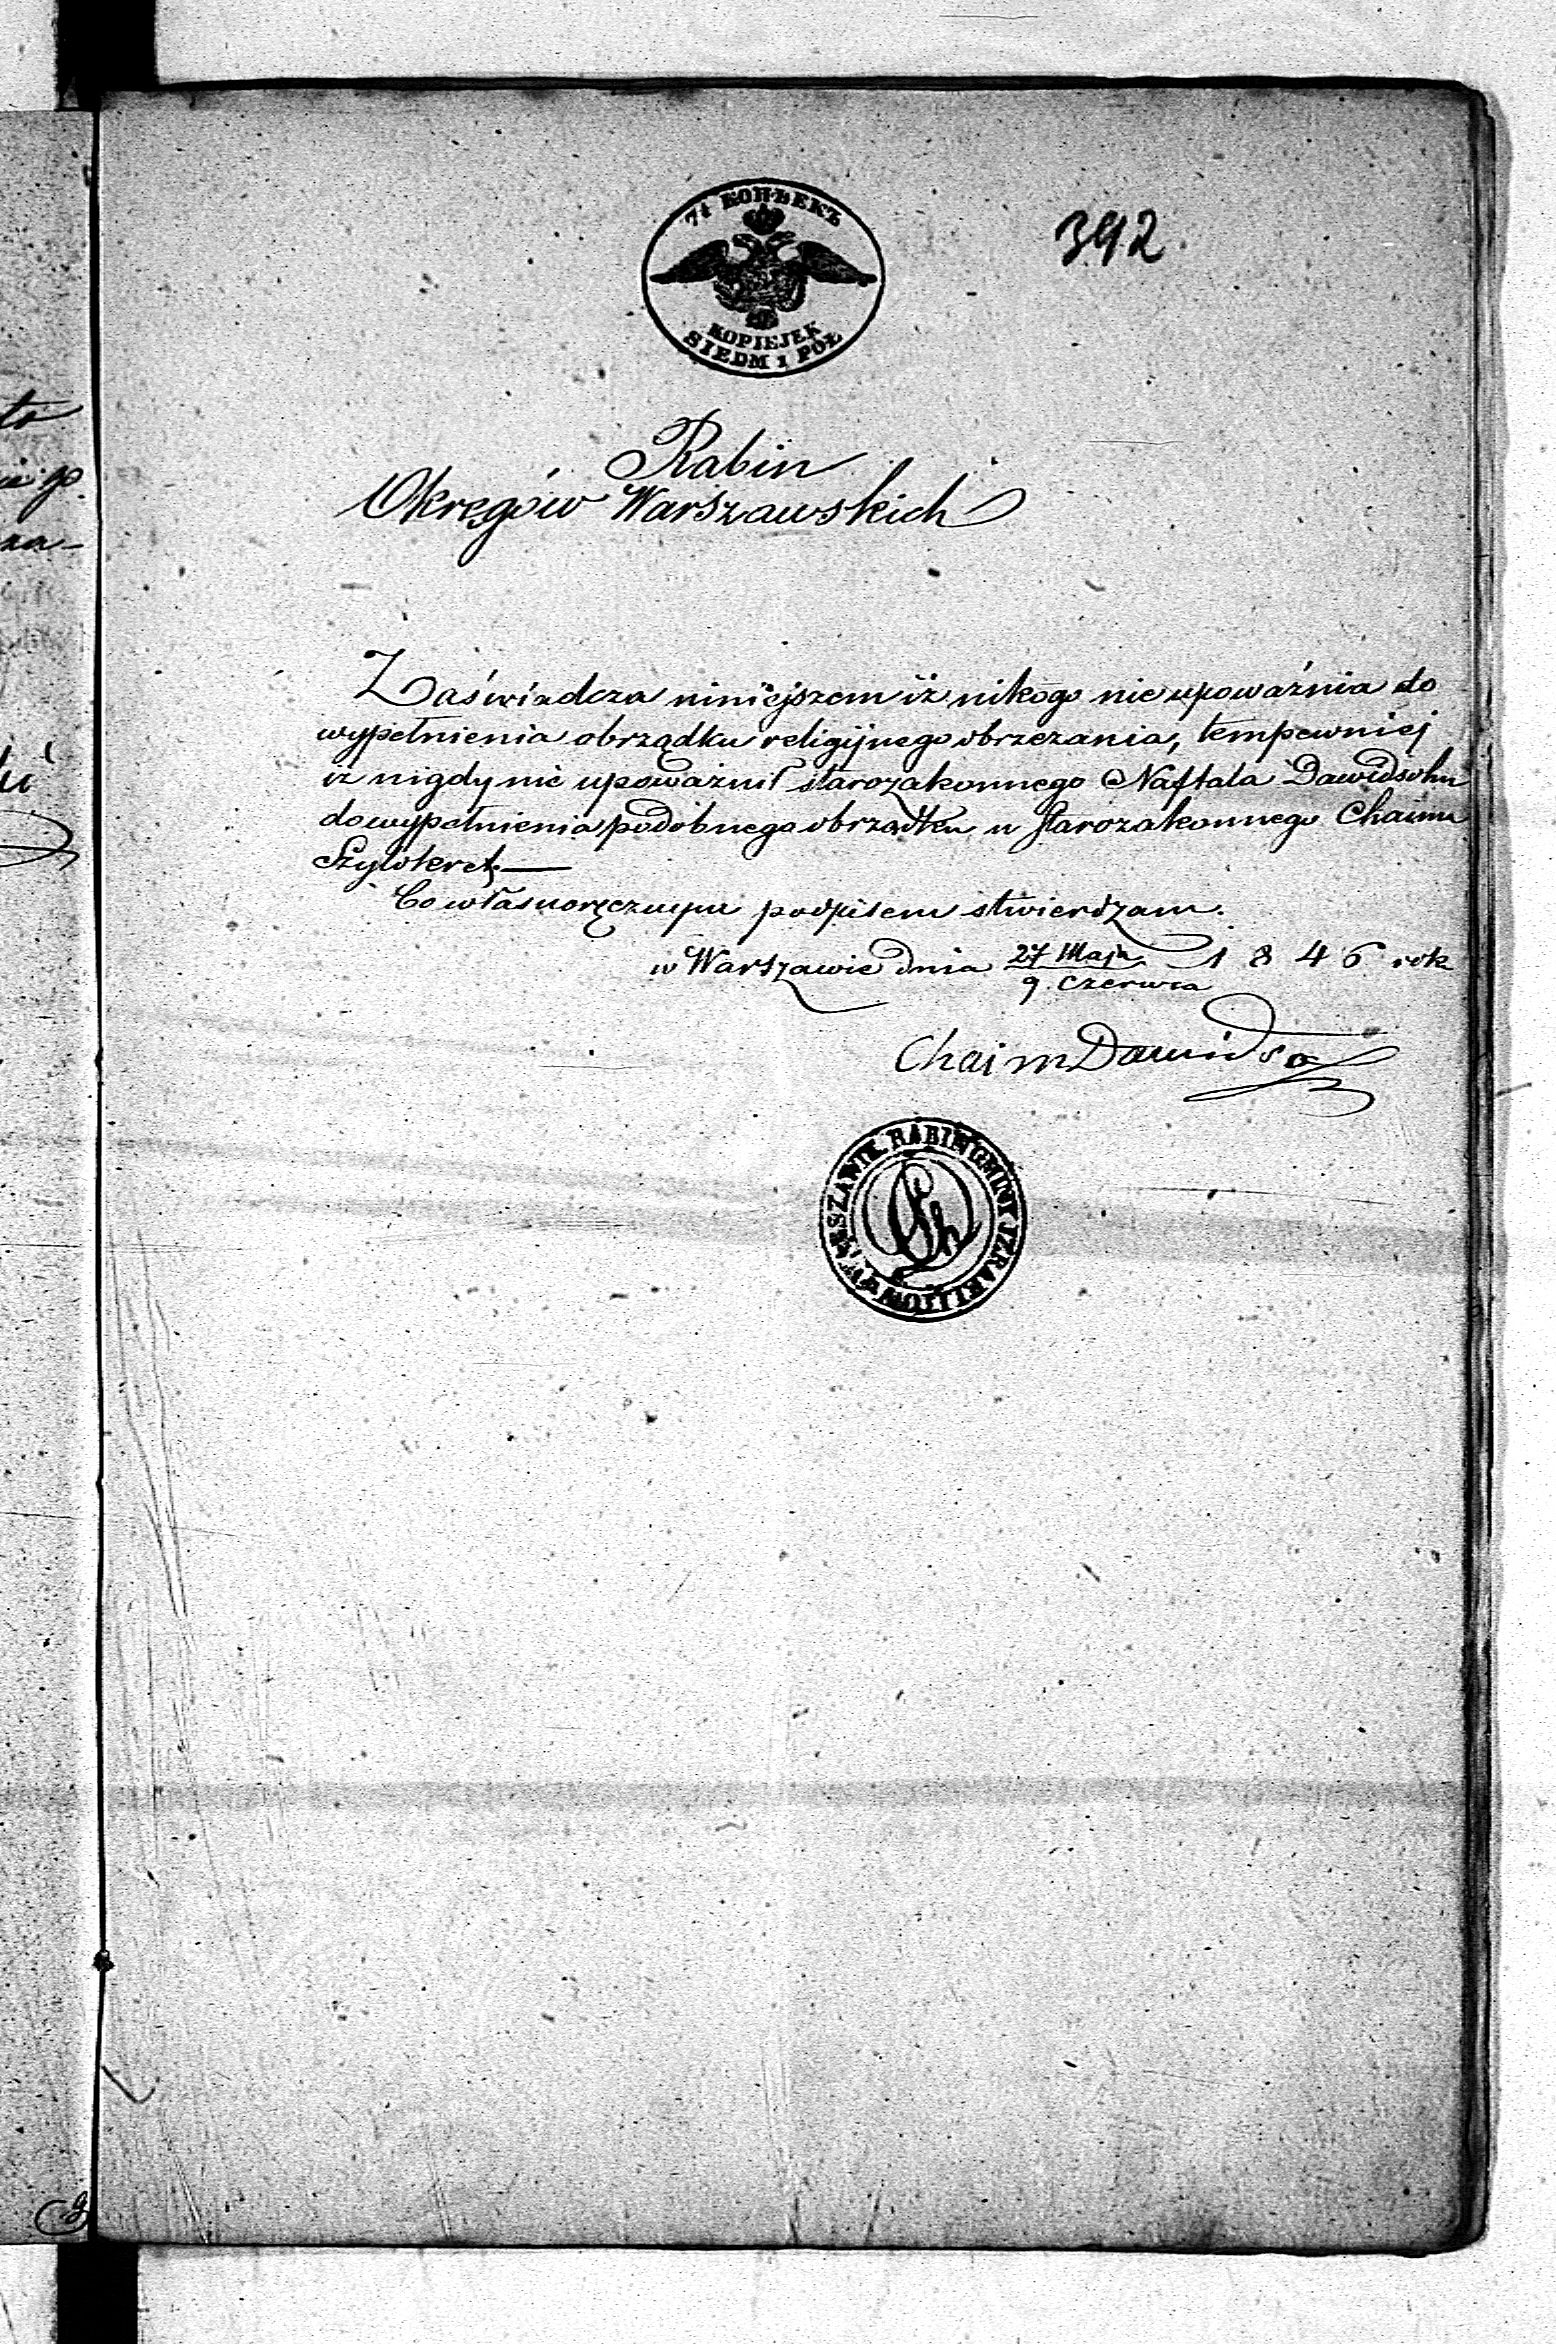 7½ КОПѢЕКЪ
KOPIEJEK
SIEDM I PÓŁ
392
Rabin
Okręgów Warszawskich
Zaświadcza niniejszem iż nikogo nie upoważnia do
wypełnienia obrządku religijnego obrzezania, tempewniej
iż nigdy nie upoważnił starozakonnego Naftala Dawidsohn
do wypełnienia podobnego obrządku u starozakonnego Chaima
Szyldkret.—
Co własnoręcznym podpisem stwierdzam.
w Warszawie dnia 27 Maja 1846 rok
9 Czerwca
Chaim Dawidso
RABIN GMINY IZRAELITÓW W WARSZAWIE